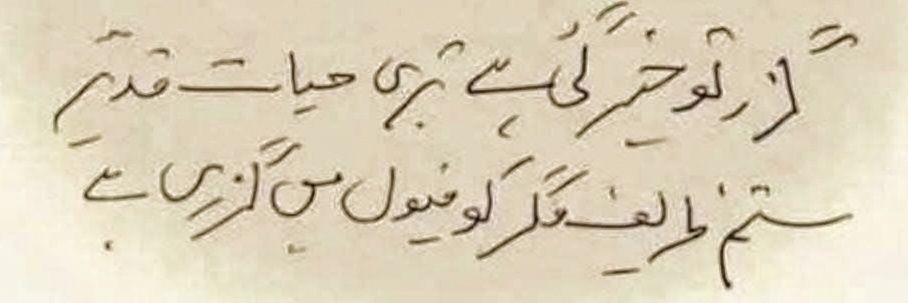 گزر تو خیر گئی ہے تری حیات قدیر
ستم ظریف مگر کوفیوں میں گزری ہے